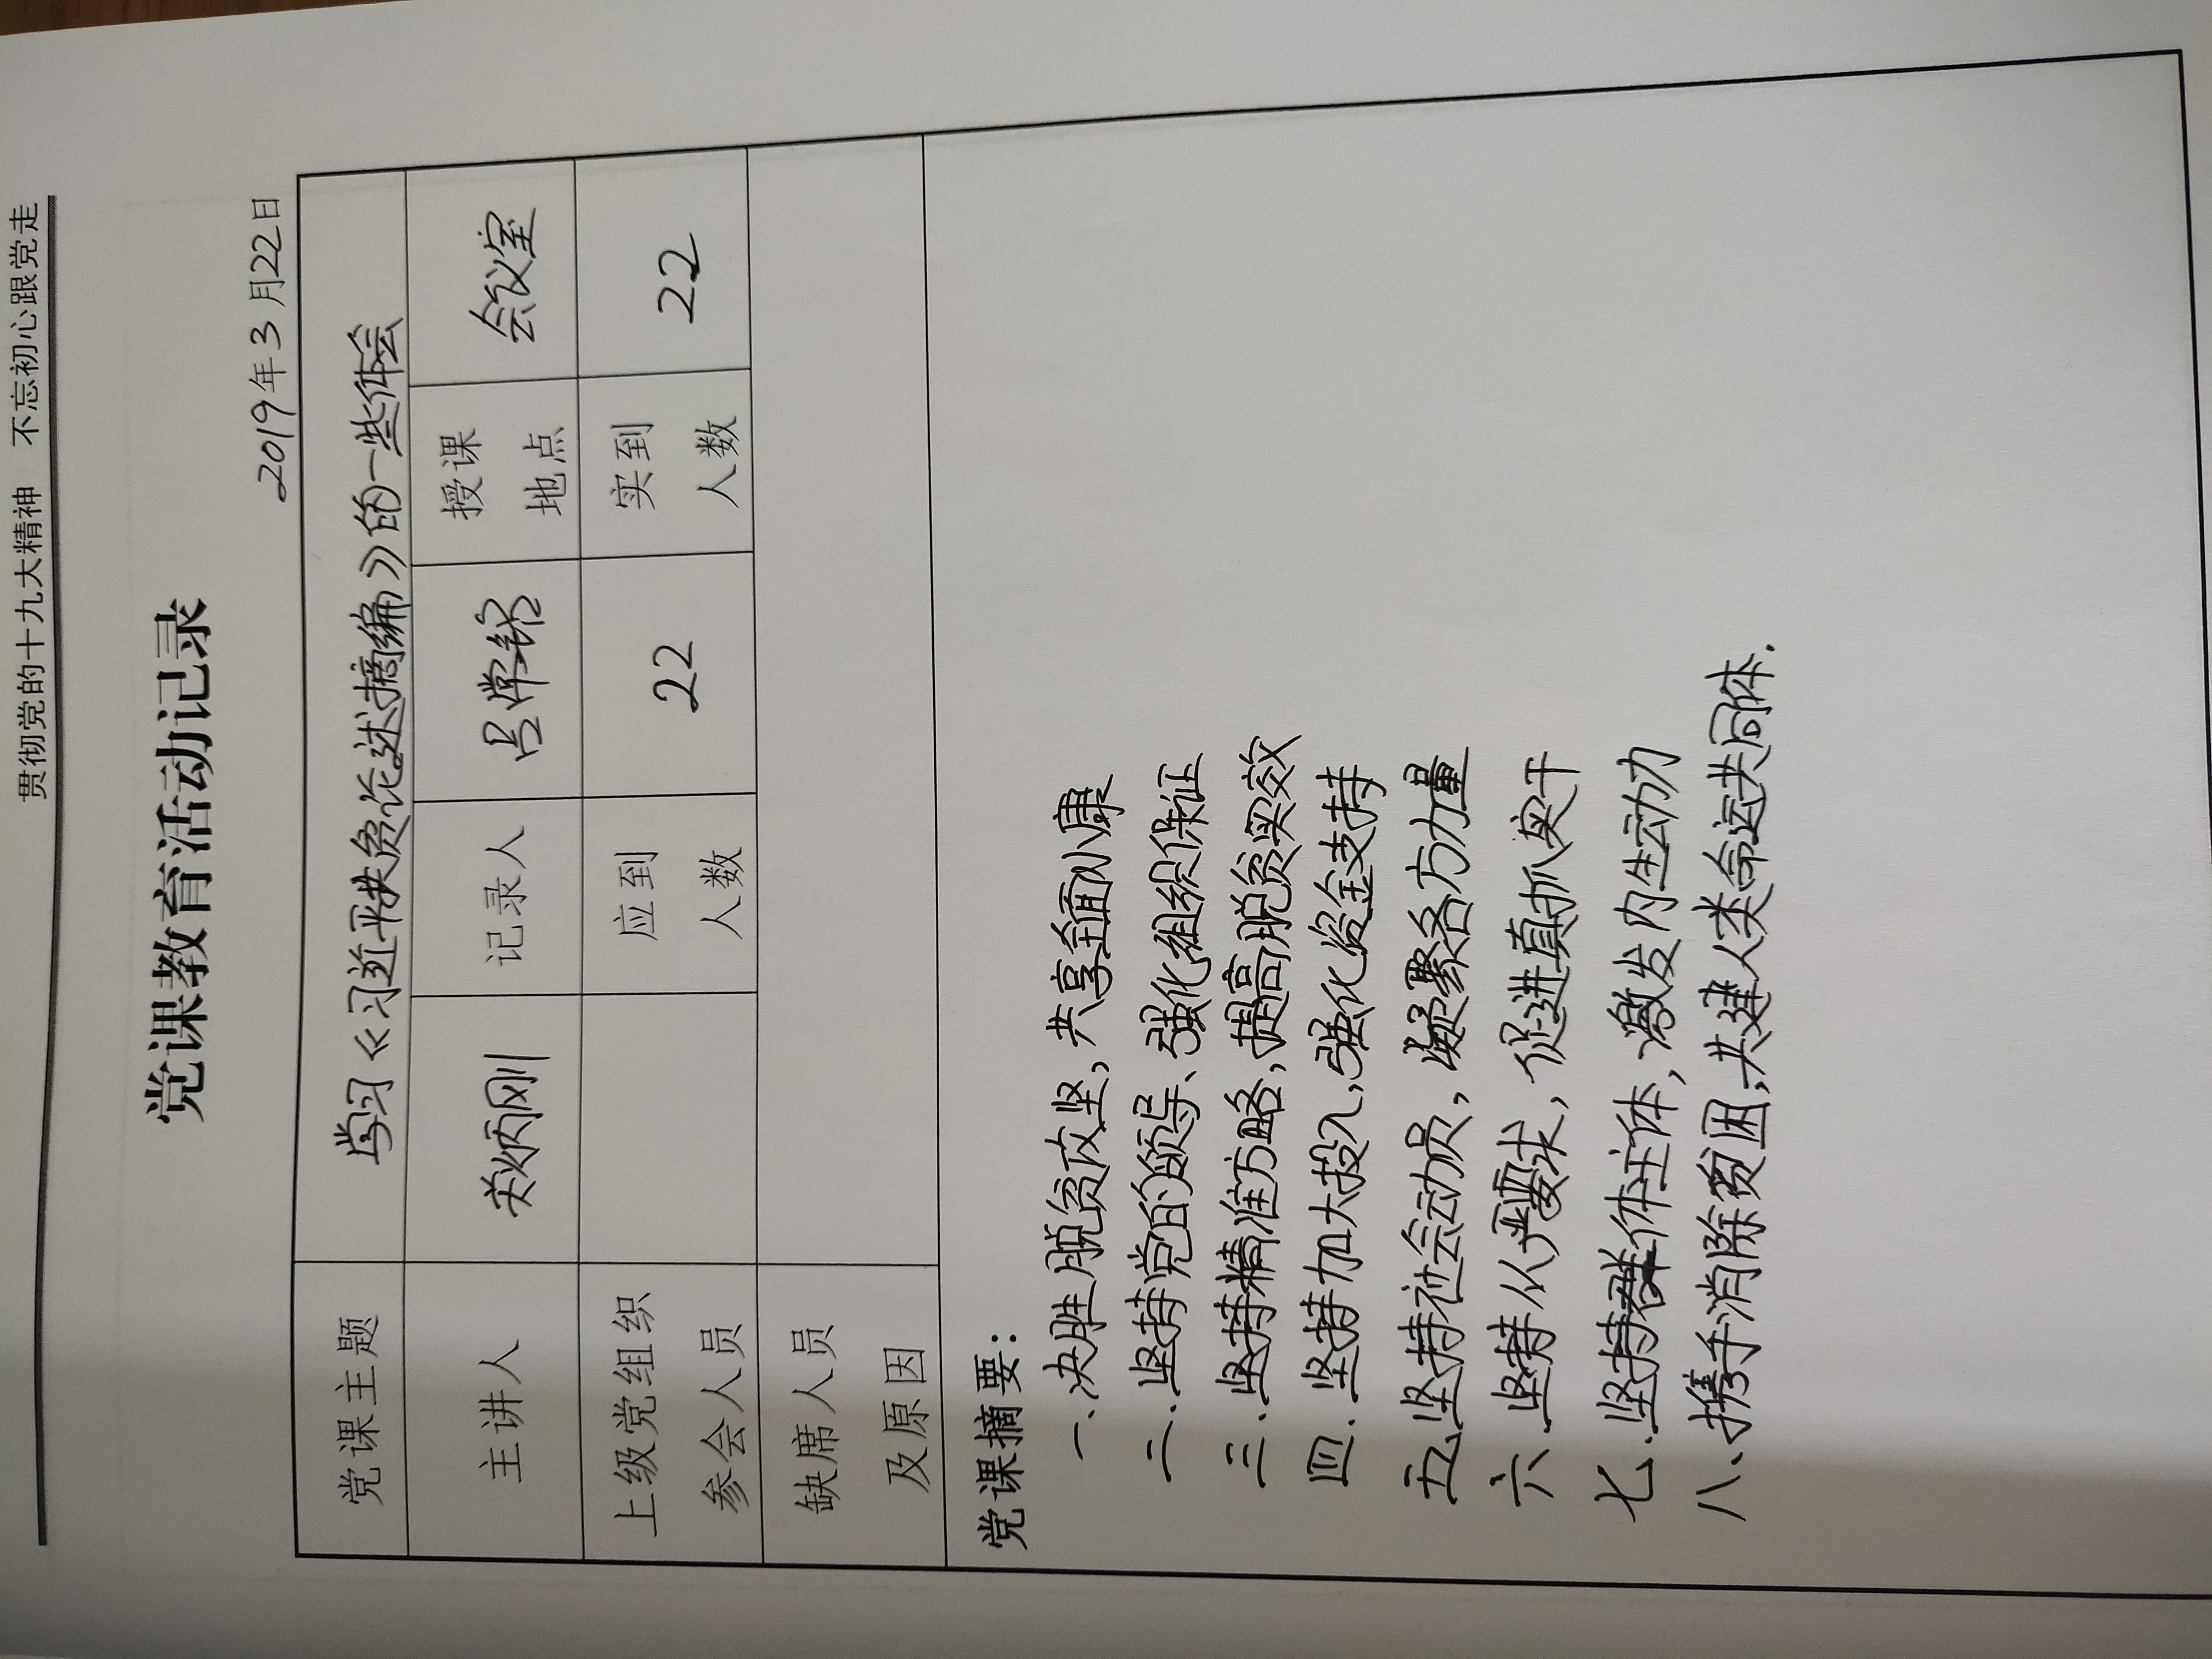 贯彻党的十九大精神 不忘初心跟党走
党课教育活动记录
2019年3月22日
党课主题 学习《习近平扶贫论述摘编》的一些体会
主讲人 关炳刚 记录人 吕学铭 授课地点 会议室
上级党组织参会人员 应到人数 22 实到人数 22
缺席人员及原因
党课摘要：
一、决胜脱贫攻坚，共享全面小康
二、坚持党的领导、强化组织保证
三、坚持精准方略，提高脱贫实效
四、坚持加大投入，强化资金支持
五、坚持社会动员，凝聚各方力量
六、坚持从严要求，促进真抓实干
七、坚持群体主体，激发内生动力
八、携手消除贫困，共建人类命运共同体.